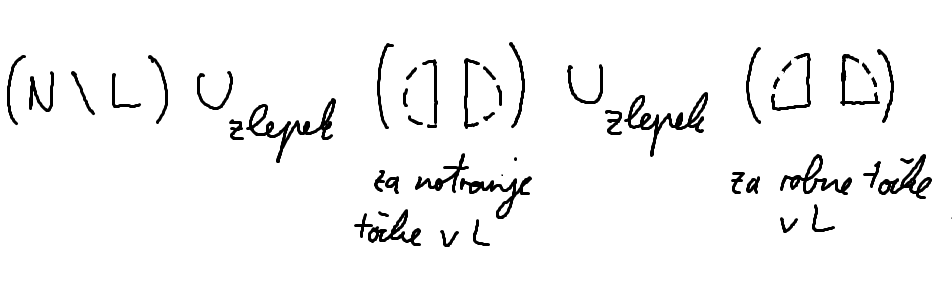 (N \ L) ∪ zlepek ( ) ∪ zlepek ( )
za notranje
točke v L
za robne točke
v L